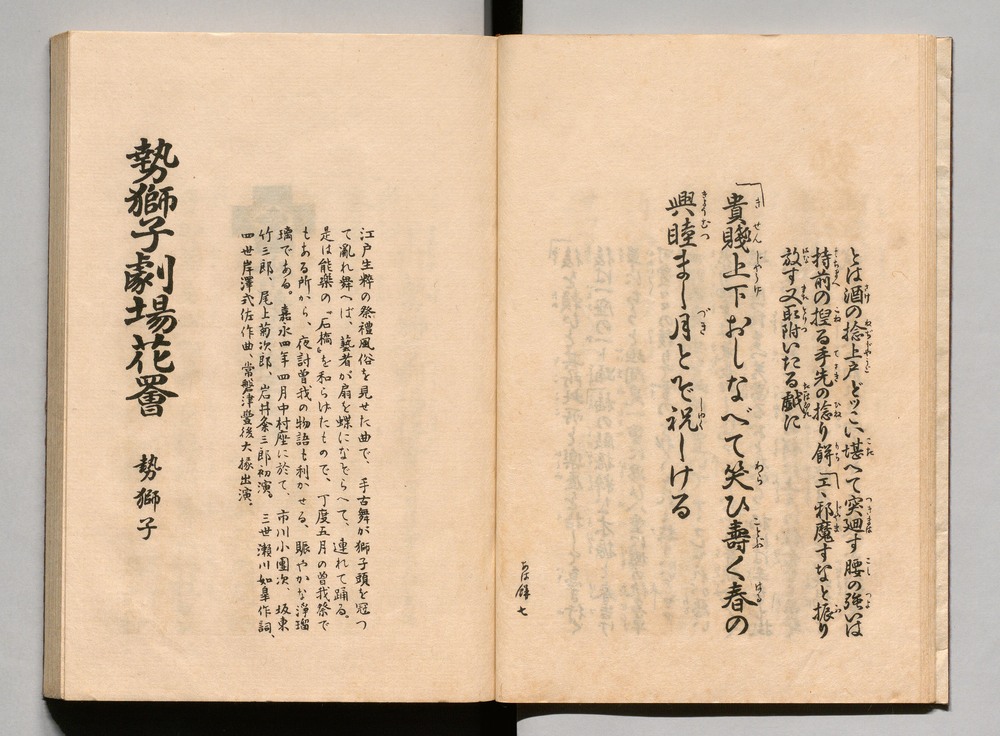 とは酒の捻上戸どつこい堪へて突廻す腰の強いは
持前の捏る手先の捻り餅「エヽ邪魔すなと振り
放す又取附いたる戯に
「貴賤上下おしなべて笑ひ壽く春の
興睦ま〳〵月とぞ祝しける
あは餅 七
勢獅子劇場花罾 勢獅子
江戸生粋の祭禮風俗を見せた曲で、手古舞が獅子頭を冠つ
て亂れ舞へば、藝者が扇を蝶になぞらへて、連れて踊る。
是は能樂の『石橋』を和らげたもので、丁度五月の曾我祭で
もある所から、夜討曾我の物語も利かせる、賑やかな淨瑠
璃である。嘉永四年四月中村座に於て、市川小團次、坂東
竹三郎、尾上菊次郎、岩井粂三郎初演。三世瀬川如皐作詞、
四世岸澤式佐作曲、常磐津豐後大掾出演。